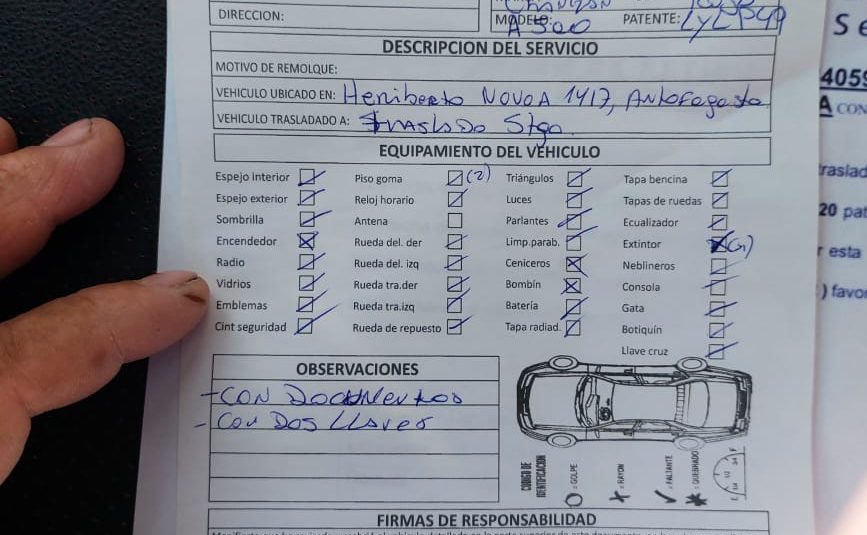 DIRECCION:
MODELO: A 500 PATENTE:
DESCRIPCION DEL SERVICIO
MOTIVO DE REMOLQUE:
VEHICULO UBICADO EN: Heriberto NOVOA 1417, Antofagasta
VEHICULO TRASLADADO A: traslado Stgo.
EQUIPAMIENTO DEL VEHICULO
Espejo interior Piso goma (2) Triángulos Tapa bencina
Espejo exterior Reloj horario Luces Tapas de ruedas
Sombrilla Antena Parlantes Ecualizador
Encendedor Rueda del. der Limp.parab. Extintor
Radio Rueda del. izq Ceniceros Neblineros
Vidrios Rueda tra.der Bombín Consola
Emblemas Rueda tra.izq Batería Gata
Cint seguridad Rueda de repuesto Tapa radiad. Botiquín
Llave cruz
OBSERVACIONES
- CON DOCUMENTOS
- CON DOS LLAVES
CODIGO DE IDENTIFICACION
= GOLPE
= RAYON
= FALTANTE
= QUEBRADO
FIRMAS DE RESPONSABILIDAD
4059
A CON
traslad
20 pat
r esta
) favor